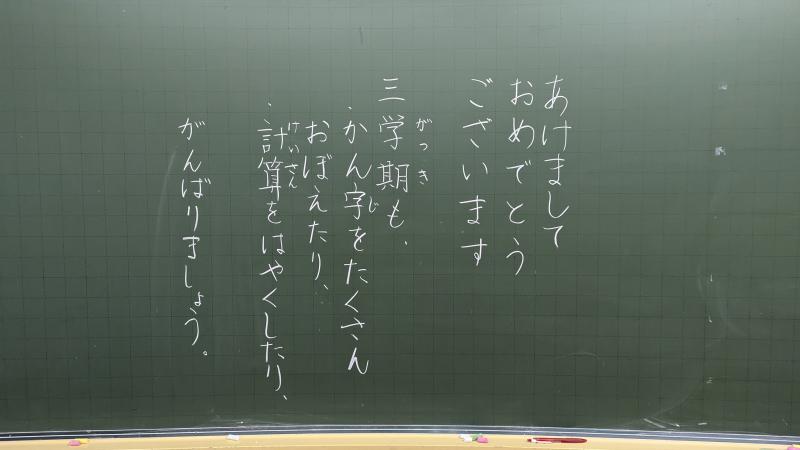 あけまして
おめでとう
ございます
三学期も、
がっき
・かん字をたくさん
じ
おぼえたり、
・計算をはやくしたり、
けいさん
がんばりましょう。